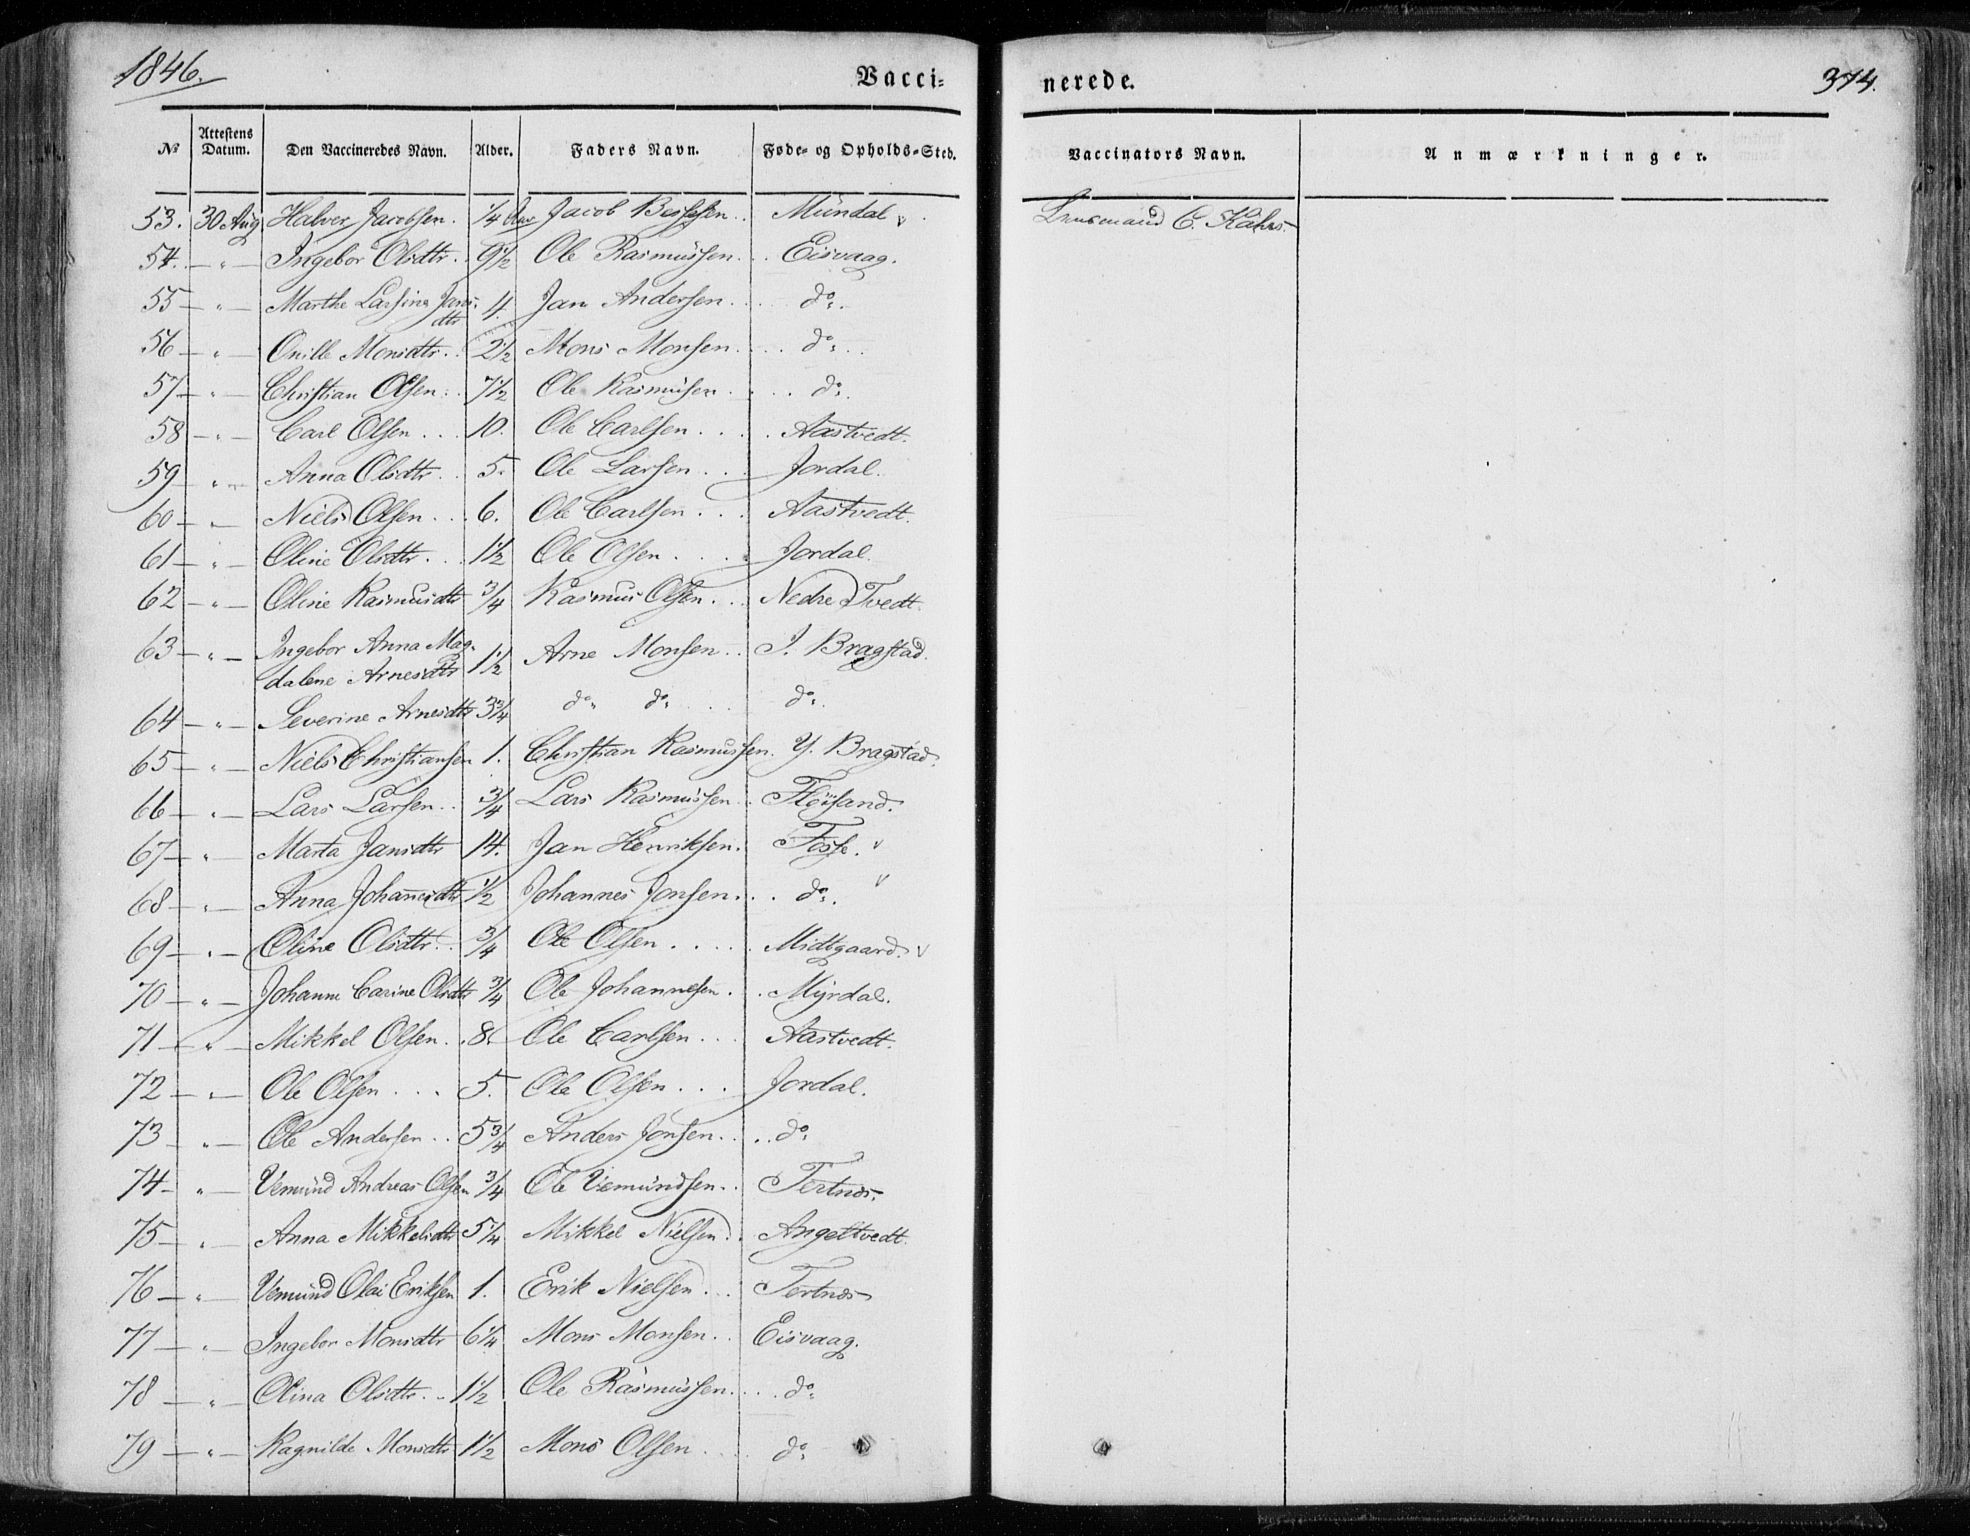 1846.
Vacci-
nerede.
374.
№ Attestens Datum. Den Vaccineredes Navn. Alder. Faders Navn. Føde- og Opholds-Sted. Vaccinators Navn. Anmærkninger.
53. 30 Aug Halver Jacobsen. 1/4 Aar Jacob Jacob Mundal Lensmand C. Kahrs.
54. — " — Ingebor Olsdtr. 9 1/2 Ole Rasmussen. Eisvaag.
55 — " — Marthe Larsine Jans-
dtr 4. Jan Andersen. do.
56 — " — Onille Monsdtr. 2 1/2 Mons Monsen. do.
57 — " — Christian Olsen. 7 1/2 Ole Rasmusen do.
58 — " — Carl Olsen. 10. Ole Carlsen. Aastvedt.
59 — " — Anna Olsdtr. 5. Ole Larsen. Jordal.
60 — " — Niels Olsen. 6. Ole Carlsen. Aastvedt.
61 — " — Oline Olsdtr. 1 1/2 Ole Olsen. Jordal.
62 — " — Oline Rasmusdtr 3/4 Rasmus Olsen. Nedre Tvedt.
63 — " — Ingebor Anna Mag-
dalene Arnesdtr 1 1/2 Arne Monsen. I. Bragstad.
64 — " — Severine Arnesdtr 3 3/4 do do do.
65 — " — Niels Christiansen 1. Christian Rasmussen. Y. Bragstad.
66 — " — Lars Larsen. 3/4 Lars Rasmussen. Fløisand.
67 — " — Marta Jansdtr 14. Jan Henriksen. Fosse.
68 — " — Anna Johannesdtr 1/2 Johannes Jonsen. do.
69 — " — Oline Olsdtr. 3/4 Ole Olsen. Midtgaard.
70 — " — Johanne Carine Olsdtr 3/4 Ole Johannesen. Myrdal.
71 — " — Mikkel Olsen. 8. Ole Carlsen. Aastvedt.
72 — " — Ole Olsen. 5. Ole Olsen. Jordal.
73 — " — Ole Andersen. 5 3/4 Anders Jonsen. do.
74 — " — Vemund Andreas Olsen 3/4 Ole Vemundsen. Tertnæs.
75 — " — Anna Mikkelsdtr 5 1/4 Mikkel Nielsen. Angeltvedt.
76 — " — Vemund Olai Eriksen 1. Erik Nielsen. Tertnæs
77 — " — Ingebor Monsdtr 6 1/4 Mons Monsen. Eisvaag.
78 — " — Olina Olsdtr. 1 1/2 Ole Rasmussen. do.
79 — " — Ragnilde Monsdtr 1 1/2 Mons Olsen. do.